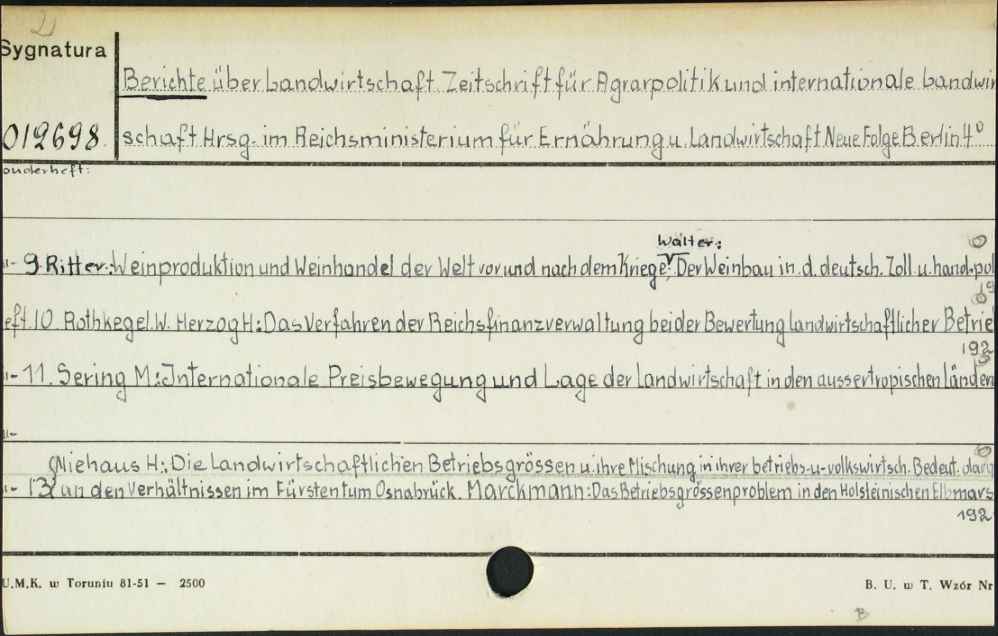 2
Sygnatura
Berichte über Landwirtschaft. Zeitschrift für Agrarpolitik und internationale Landwirt
012698. schaft Hrsg. im Reichsministerium für Ernährung u. Landwirtschaft Neue Folge Berlin 4°
onderheft:
Walter:
-"- 9 Ritter: Weinproduktion und Weinhandel der Welt vor und nach dem Kriege. Der Weinbau in d. deutsch. Zoll u. hand. pol
19
eft 10. Rothkegel W. Herzog H: Das Verfahren der Reichsfinanzverwaltung bei der Bewertung landwirtschaftlicher Betrie
192
-"- 11. Sering M: Internationale Preisbewegung und Lage der Landwirtschaft in den aussertropischen Länden
-"-
Niehaus H: Die Landwirtschaftlichen Betriebsgrössen u. ihre Mischung in ihrer betriebs-u-volkswirtsch. Bedeut. darg
-"- 13 an den Verhältnissen im Fürstentum Osnabrück. Marckmann: Das Betriebsgrössenproblem in den Holsteinischen Elbmars
192
U.M.K. w Toruniu 81-51 — 2500
B. U. w T. Wzór Nr
B